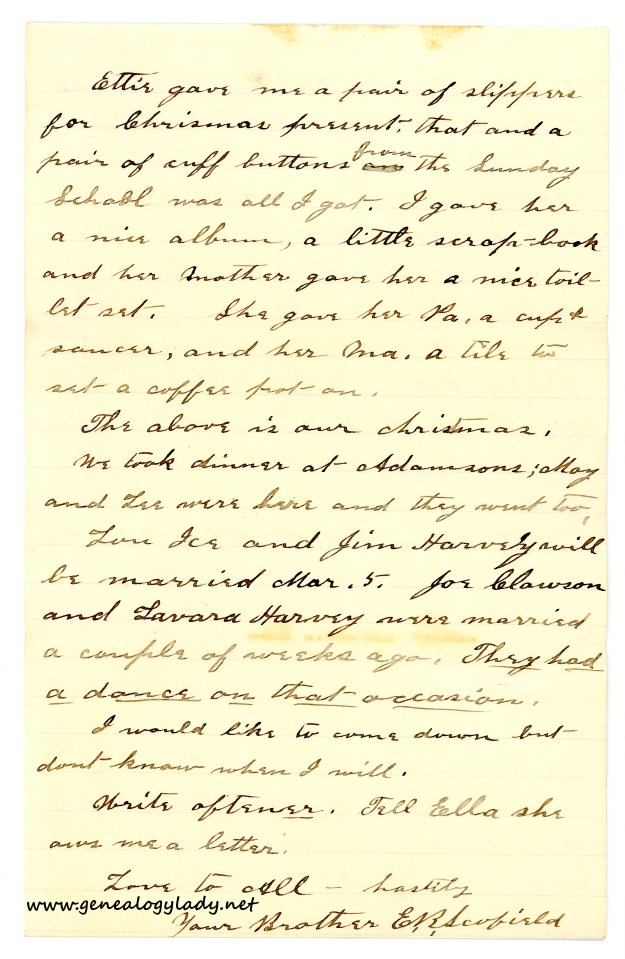 Ettie gave me a pair of slippers
for Chrismas present. that and a
pair of cuff buttons from the Sunday
School was all I got. I gave her
a nice album, a little scrap-book
and her Mother gave her a nice toil-
let set. She gave her Pa, a cup &
saucer, and her Ma. a tile to
set a coffee pot on.
The above is our christmas.
We took dinner at Adamsons; May
and Lee were here and they went too,
Lou Ice and Jim Harvey will
be married Mar. 5. Joe Clawson
and Lavara Harvey were married
a couple of weeks ago. They had
a dance on that occasion.
I would like to come down but
dont know when I will.
Write oftener. Tell Ella she
ows me a letter.
Love to All – hastily
www.genealogylady.net
Your Brother E.R. Scofield